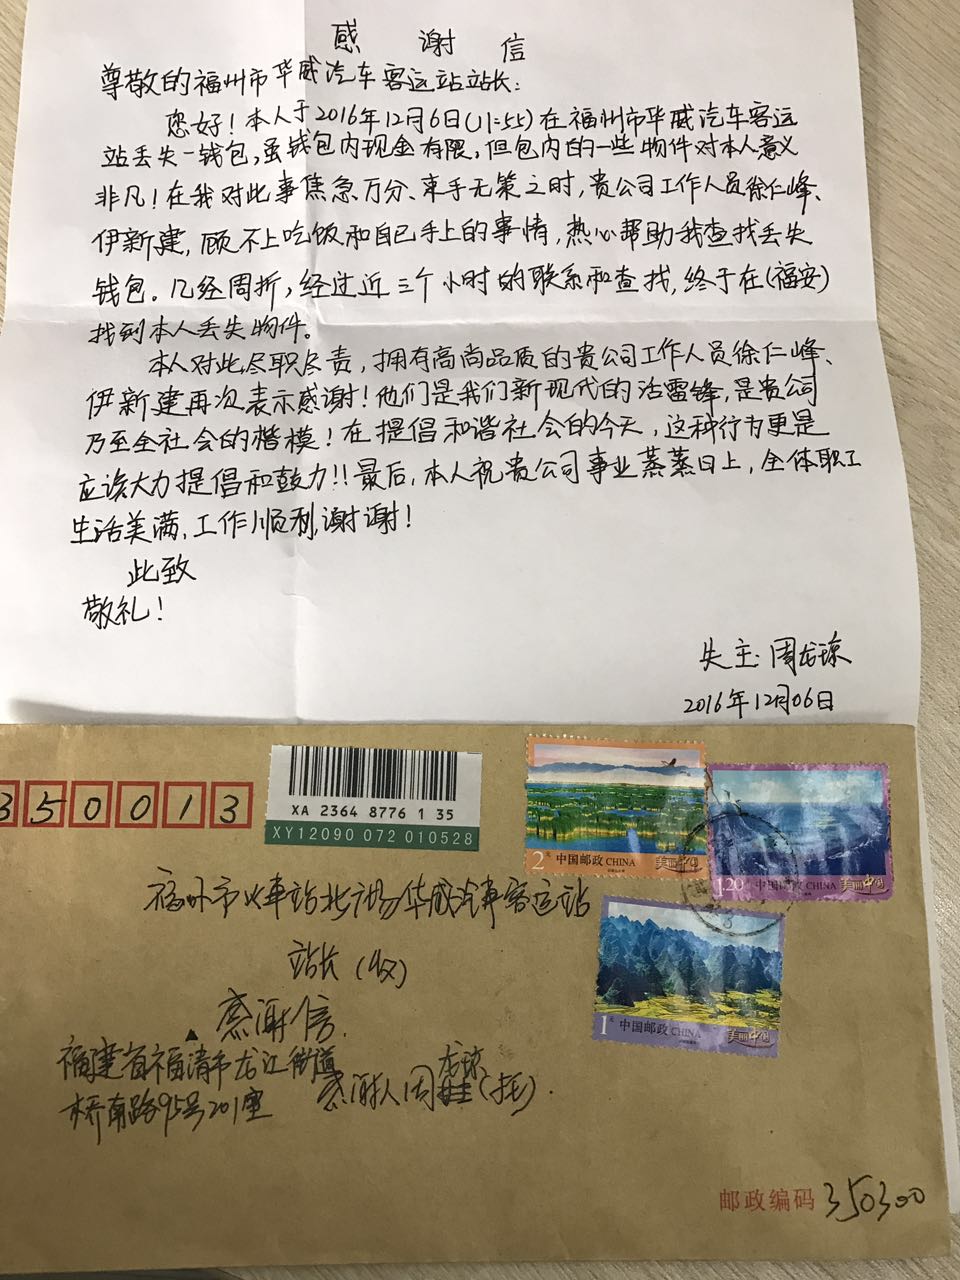 感谢信
尊敬的福州市华威汽车客运站站长:
您好!本人于2016年12月6日(11:55)在福州市华威汽车客运
站丢失一钱包,虽钱包内现金有限,但包内的一些物件对本人意义
非凡!在我对此事焦急万分、束手无策之时,贵公司工作人员徐仁峰、
伊新建,顾不上吃饭和自己手上的事情,热心帮助我查找丢失
钱包。几经周折,经过近三个小时的联系和查找,终于在(福安)
找到本人丢失物件。
本人对此尽职尽责,拥有高尚品质的贵公司工作人员徐仁峰、
伊新建再次表示感谢!他们是我们新现代的活雷锋,是贵公司
乃至全社会的楷模!在提倡和谐社会的今天,这种行为更是
应该大力提倡和鼓力!!最后,本人祝贵公司事业蒸蒸日上,全体职工
生活美满,工作顺利,谢谢!
此致
敬礼!
失主:周龙琼
2016年12月06日
350013
XA 2364 8776 1 35
XY12090 072 010528
2元 中国邮政 CHINA 美丽中国
1.20元 中国邮政 CHINA 美丽中国
1元 中国邮政 CHINA 美丽中国
福州市火车站北广场华威汽车客运站
站长(收)
感谢信
福建省福清市龙江街道
桥南路95号201室
感谢人周龙琼(托)
邮政编码 350300